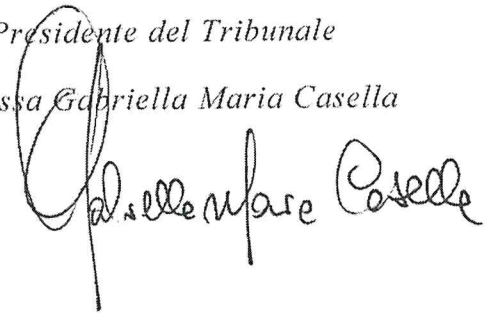 Presidente del Tribunale
ssa Gabriella Maria Casella
Gabriella Maria Casella